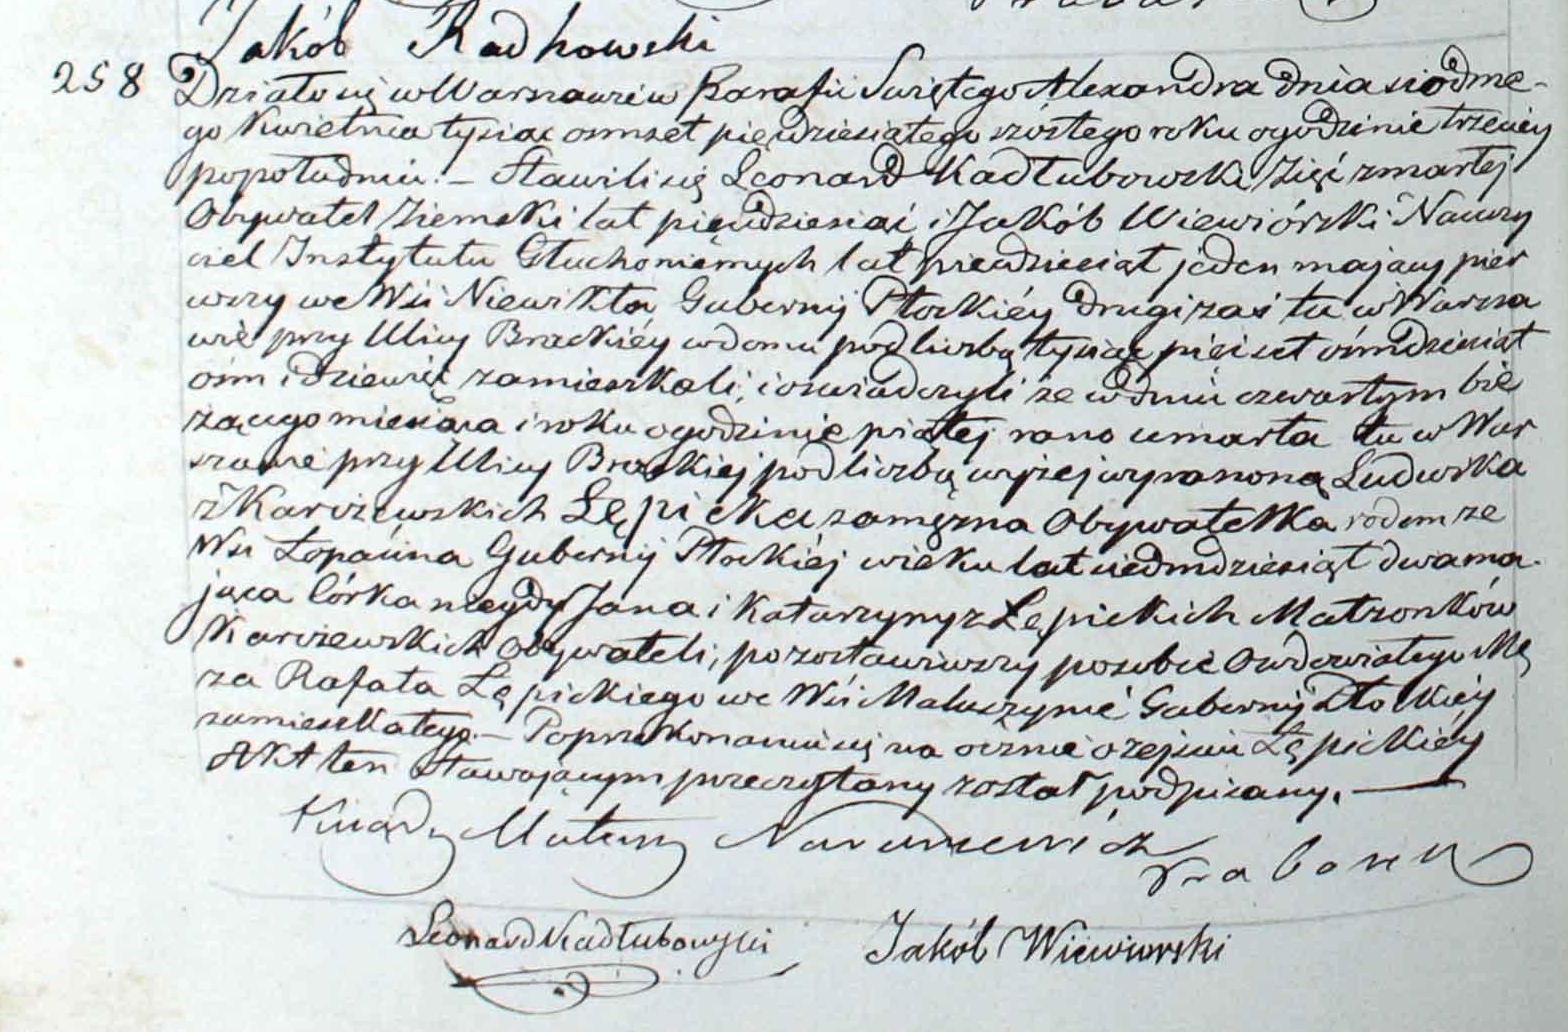 Jakób Radkowski
258 Działo się w Warszawie w Parafii Swiętego Alexandra dnia siódme-
go Kwietnia tysiąc ośmset pięćdziesiątego szóstego roku o godzinie trzeciey
popołudniu. – Stawili się Leonard Kadłubowski Zięć zmarłej
Obywatel Ziemski lat pięćdziesiąt i Jakób Wiewiórski Nauczy
ciel Instytutu Głuchoniemych lat pięćdziesiąt jeden mający pier
wszy we Wsi Niewikla Gubernij Płockiéy drugi zaś tu w Warsza
wie przy Ulicy Brackiéy w domu pod liczbą tysiąc pięćset ośmdziesiąt
ośm i dziewięć zamieszkali; i oświadczyli że w dniu czwartym bie
żącego miesiąca i roku o godzinie piątej rano umarła tu w War
szawie przy Ulicy Brackiej pod liczbą wyżej wyrażoną Ludwika
z Karczewskich Łępicka zamężna Obywatelka rodem ze
Wsi Łopacina Gubernij Płockiéj wieku lat siedmdziesiąt dwa ma-
jąca Córka niegdy Jana i Katarzyny z Łępickich Małżonków
Karczewskich Obywateli, pozostawiwszy po sobie Owdowiałego Mę
ża Rafała Łępickiego we Wsi Maluszynie Gubernij Płockiéy
zamieszkałego. – Po przekonaniu się na ocznie o zejściu Łępickiéy
Akt ten Stawającym przeczytany został podpisany. —
Xiądz Mateusz Naruszewicz
Leonard Kadłubowski Jakób Wiewiorski